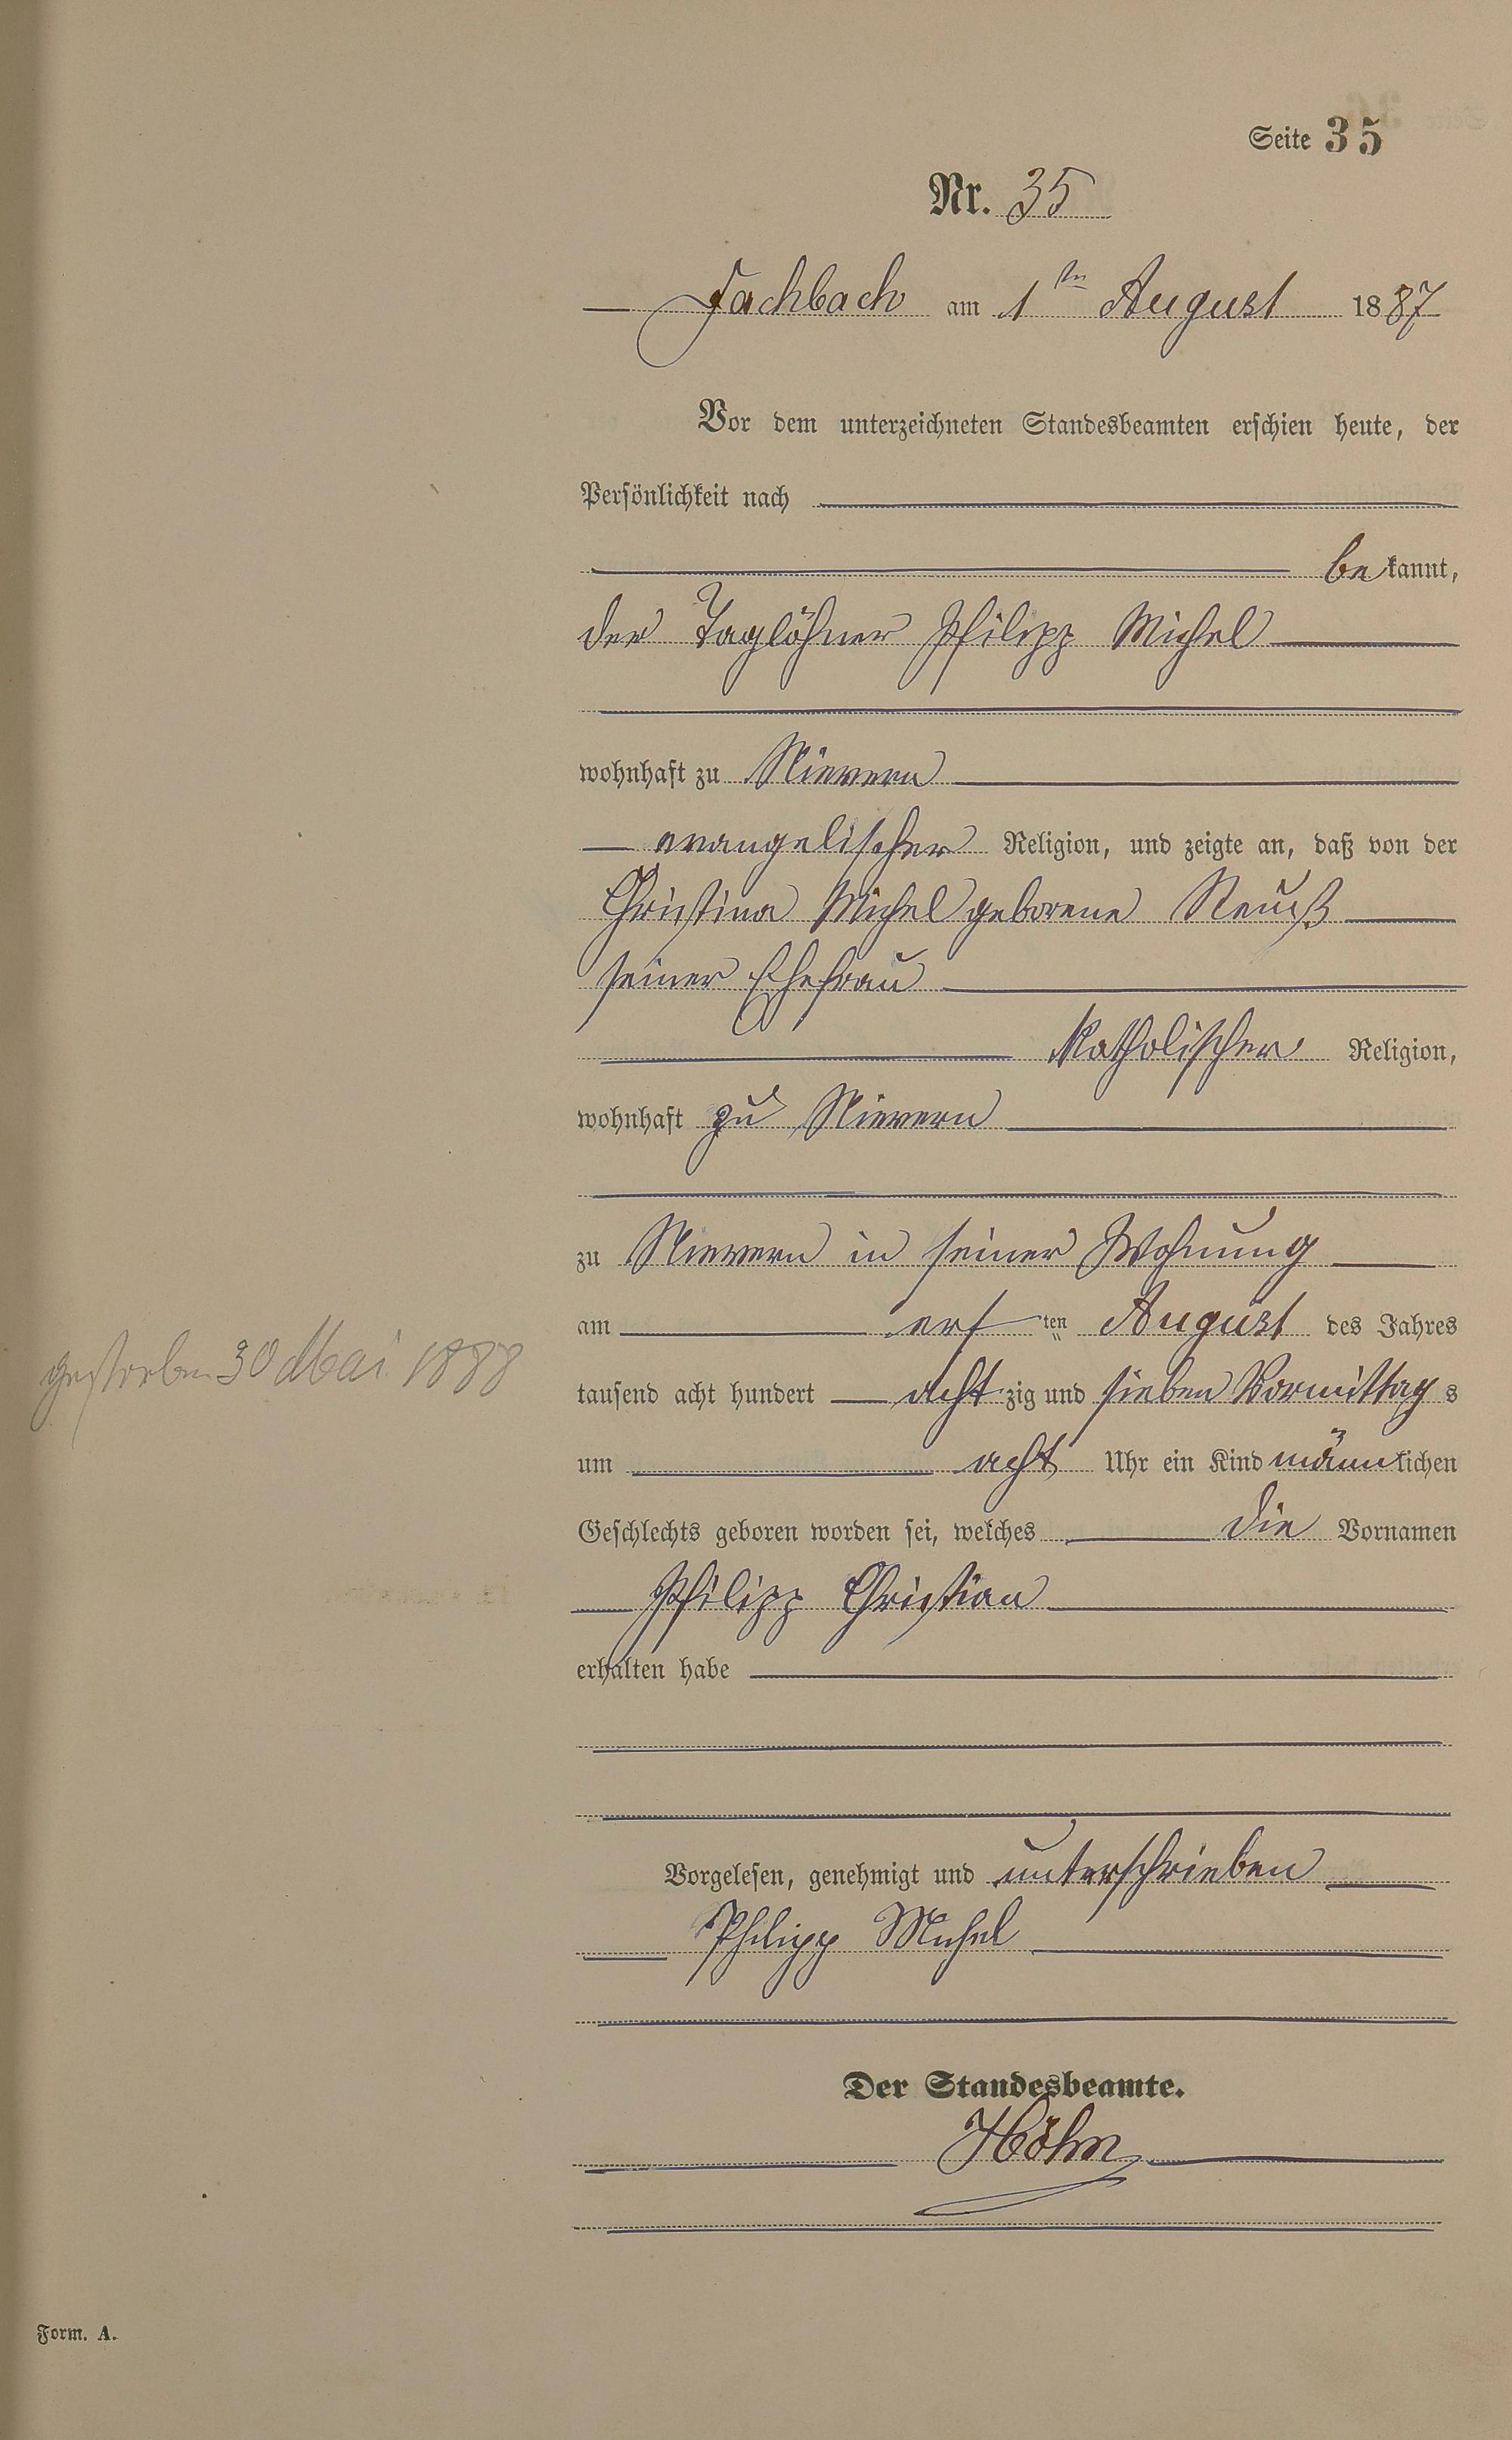 Seite 35
Nr. 35
Fachbach am 1ten August 1887
Vor dem unterzeichneten Standesbeamten erschien heute, der
Persönlichkeit nach
bekannt,
der Taglöhner Philipp Michel
wohnhaft zu Nievern
evangelischer Religion, und zeigte an, daß von der
Christina Michel geborene Neuß
seiner Ehefrau
Katholischer Religion,
wohnhaft zu Nievern
zu Nievern in seiner Wohnung
am ersten August des Jahres
gestorben 30 Mai 1888
tausend acht hundert achtzig und sieben Vormittags
um acht Uhr ein Kind männlichen
Geschlechts geboren worden sei, welches die Vornamen
Philipp Christian
erhalten habe
Vorgelesen, genehmigt und unterschrieben
Philipp Michel
Der Standesbeamte.
Höhn
Form. A.